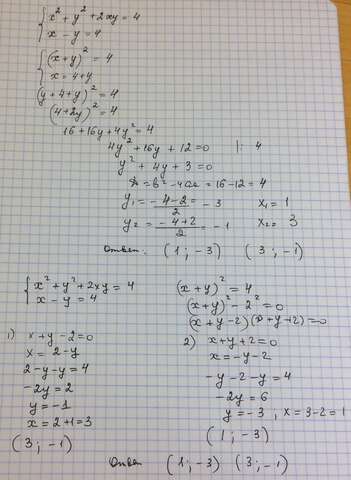 { x² + y² + 2xy = 4
x - y = 4
{ (x+y)² = 4
x = 4+y
(y+4+y)² = 4
(4+2y)² = 4
16 + 16y + 4y² = 4
4y² + 16y + 12 = 0 |: 4
y² + 4y + 3 = 0
D = b² - 4ac = 16 - 12 = 4
y₁ = (-4-2)/2 = -3 x₁ = 1
y₂ = (-4+2)/2 = -1 x₂ = 3
Ответ: (1; -3) (3; -1)
{ x² + y² + 2xy = 4
x - y = 4
(x+y)² = 4
(x+y)² - 2² = 0
(x+y-2)(x+y+2) = 0
1) x + y - 2 = 0
x = 2-y
2-y-y = 4
-2y = 2
y = -1
x = 2+1 = 3
(3; -1)
2) x+y+2 = 0
x = -y-2
-y-2-y = 4
-2y = 6
y = -3, x = 3-2 = 1
(1; -3)
Ответ (1; -3) (3; -1)